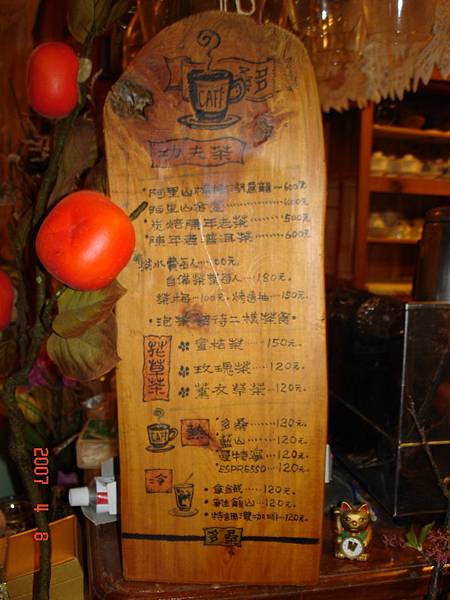 多桑
CAFE
功夫茶
阿里山 烏龍 600元
阿里山金萱 400元
炭焙陳年老茶 500元
陳年老普洱茶 600元
茶水費每人 100元
自備茶葉每人 180元
茶梅 100元 烤魯柚 150元
泡茶招待二樣茶點
花草茶
蜜桔茶 150元
玫瑰茶 120元
薰衣草茶 120元
CAFE
熱
多桑 120元
藍山 120元
曼特寧 120元
ESPRESSO 120元
冷
拿鐵 120元
藍山 120元
特調 咖啡 120元
多桑
2007 4 8